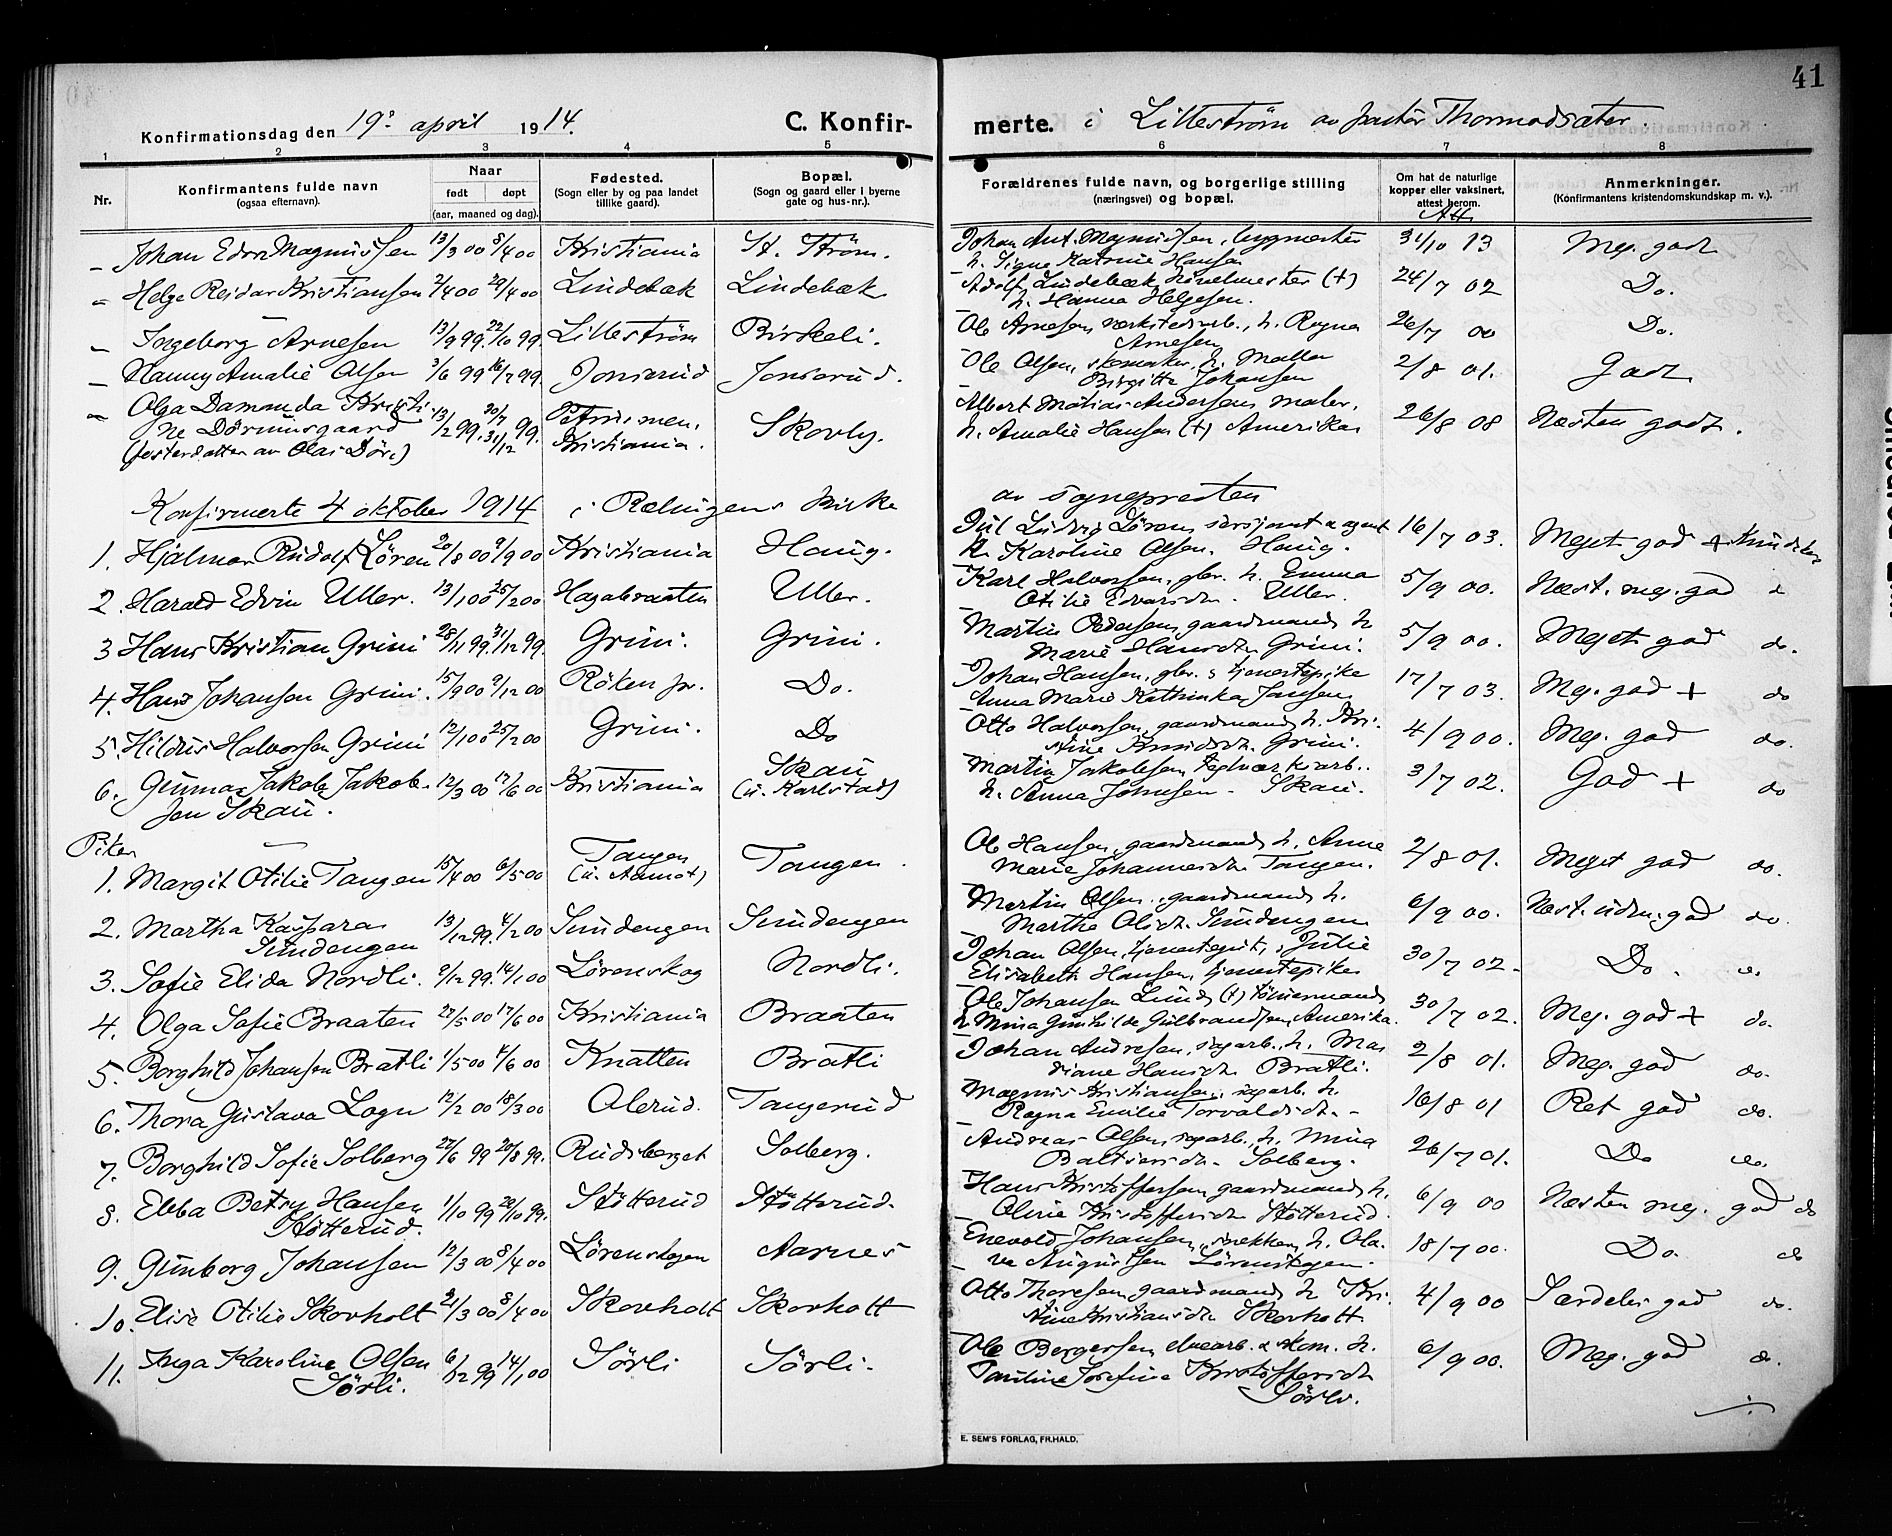 41
Konfirmationsdag den 19de april 1914. C. Konfirmerte. i Lillestrøm av pastor Thormodsæter.
1 2 3 4 5 6 7 8
Nr. Konfirmantens fulde navn (ogsaa efternavn). Naar født døpt (aar, maaned og dag). Fødested. (Sogn eller by og paa landet tillike gaard). Bopæl. (Sogn og gaard eller i byerne gate og hus-nr.). Forældrenes fulde navn, og borgerlige stilling (næringsvei) og bopæl. Om hat de naturlige kopper eller vaksinert, attest herom. Anmerkninger. (Konfirmantens kristendomskundskap m. v.).
Att.
– Johan Edvin Magnussen 13/3 00 8/4 00 Kristiania St. Strøm. Johan Ant. Magnussen, bygmester h. Signe Katrine Hansen 31/10 13 Meg. godt
– Helge Reidar Kristiansen 2/4 00 29/4 00 Lindebæk Lindebæk Adolf Lindebæk høvelmester (+) h. Hanna Helgesen. 24/7 02 Do.
– Ingeborg Arnesen 13/9 99. 22/10 99. Lillestrøm Birkeli. Ole Arnesen værkstedarb., h. Ragna Arnesen 26/7 00 Do.
– Nanny Amalie Olsen 3/6 99 16/2 99. Jonserud Jonserud. Ole Olsen, skomaker, h. Mallen Birgitte Johansen 2/8 01. Godt
– Olga Damanda Kristine Dørumsgaard (fosterdatter av Olai Dør.) 13/2 99. 30/7 31/12 99. Petrimen. Kristiania. Skovly. Albert Matias Andersen maler, h. Amalie Hansen (+) Amerika 26/8 08 Næsten godt.
Konfirmerte 4 oktober 1914 i Rælingens kirke av sognepresten
1. Hjalmar Rudolf Løren 20/8 00 9/9 00 Kristiania Haug. Jul. Ludvig Løren, sersjant & agent h. Karoline Olsen. Haug. 16/7 03. Meget god + kundskap
2. Harald Edvin Uller. 13/1 00 25/2 00 Hagabraaten Uller. Karl Halvorsen, gbr. h. Emma Otilie Edvardsdr. Uller. 5/9 00. Næst. meg. god do
3 Hans Kristian Grini 28/11 99. 31/12 99. Grini. Grini. Martin Pedersen, gaardmand h Marie Hansdtr. Grini. 5/9 00. Meget god do.
4. Hans Johansen Grini. 15/9 00 9/12 00 Røken pr. Do. Johan Hansen, gbr. & tjenestepike Anna Marie Kathinka Jansen 17/7 03. Meg. god + do
5. Hildus Halvorsen Grini 12/1 00 25/2 00 Grini. Do Otto Halvorsen, gaardmand h. Kristine Knudsdtr. Grini. 4/9 00. Meg. god do.
6. Gunnar Jakob Jakobsen Skau. 12/3 00 17/6 00 Kristiania Skau (u. Karlstad) Martin Jakobsen, teglværksarb. h. Anna Johnsen – Skau. 3/7 02. God + do
Piker
1. Margit Otilie Tangen 15/4 00 6/5 00 Tangen (u. Aamot) Tangen. Ole Hansen, gaardmand h. Anne Marie Johannesdtr Tangen. 2/8 01. Meget god do.
2. Martha Kaspara Sundengen 13/12 99. 4/2 00 Sundengen Sundengen Martin Olsen, gaardmand h. Marthe Olsdtr. Sundengen 6/9 00. Næst. udm. god do.
3. Sofie Elida Nordli. 9/12 99. 14/1 00 Lørenskog Nordli. Johan Olsen, tjenestegut, & Julie Elisabeth Hansen, tjenestepike 30/7 02. Do. do.
4. Olga Sofie Braaten 22/5 00 17/6 00 Kristiania Braaten Ole Johansen Lund (+) tømmermand h. Mina Gunhilde Gulbrandsen, Amerika. 30/7 02. Meg. god + do.
5. Borghild Johansen Bratli 1/5 00 4/6 00 Knatten Bratli Johan Andresen, sagarb. h. Madiane Hansdtr Bratli. 2/8 01. Meg. god do.
6. Thora Gustava Logn 12/2 00 18/3 00 Olerud. Tangerud Magnus Kristiansen, sagarb. h. Ragna Emilie Torvaldsdtr. – 16/8 01 Ret god do.
7. Borghild Sofie Solberg 22/6 99 20/8 99. Rudsberget Solberg. Andreas Olsen, sagarb., h. Mina Baltsersdtr. Solberg. 26/7 01. Do do.
8. Ebba Betsy Hansen Støtterud. 1/10 99 29/10 99. Støtterud Støtterud. Hans Kristoffersen, gaardmand h. Oline Kristoffersdtr Støtterud. 6/9 00 Næsten meg. god do
9. Gunborg Johansen 12/3 00 8/4 00 Lørenskogen Aarnes Enevold Johansen, snekker, h. Olava Augustsen Lørenskogen. 18/7 00. Do. do
10. Elise Otilie Skovholt 21/3 00 8/4 00 Skovholt Skovholt Otto Thoresen, gaardmand h Kristine Kristiansdtr Skovholt 4/9 00 Særdeles god do.
11. Inga Karoline Olsen Sørli. 6/12 99 14/1 00 Sørli Sørli. Ole Bergersen, elvearb. & skom. h. Pauline Josefine Kristoffersdtr Sørli. 6/9 00. Meg. god do.
E. SEM'S FORLAG, FR.HALD.